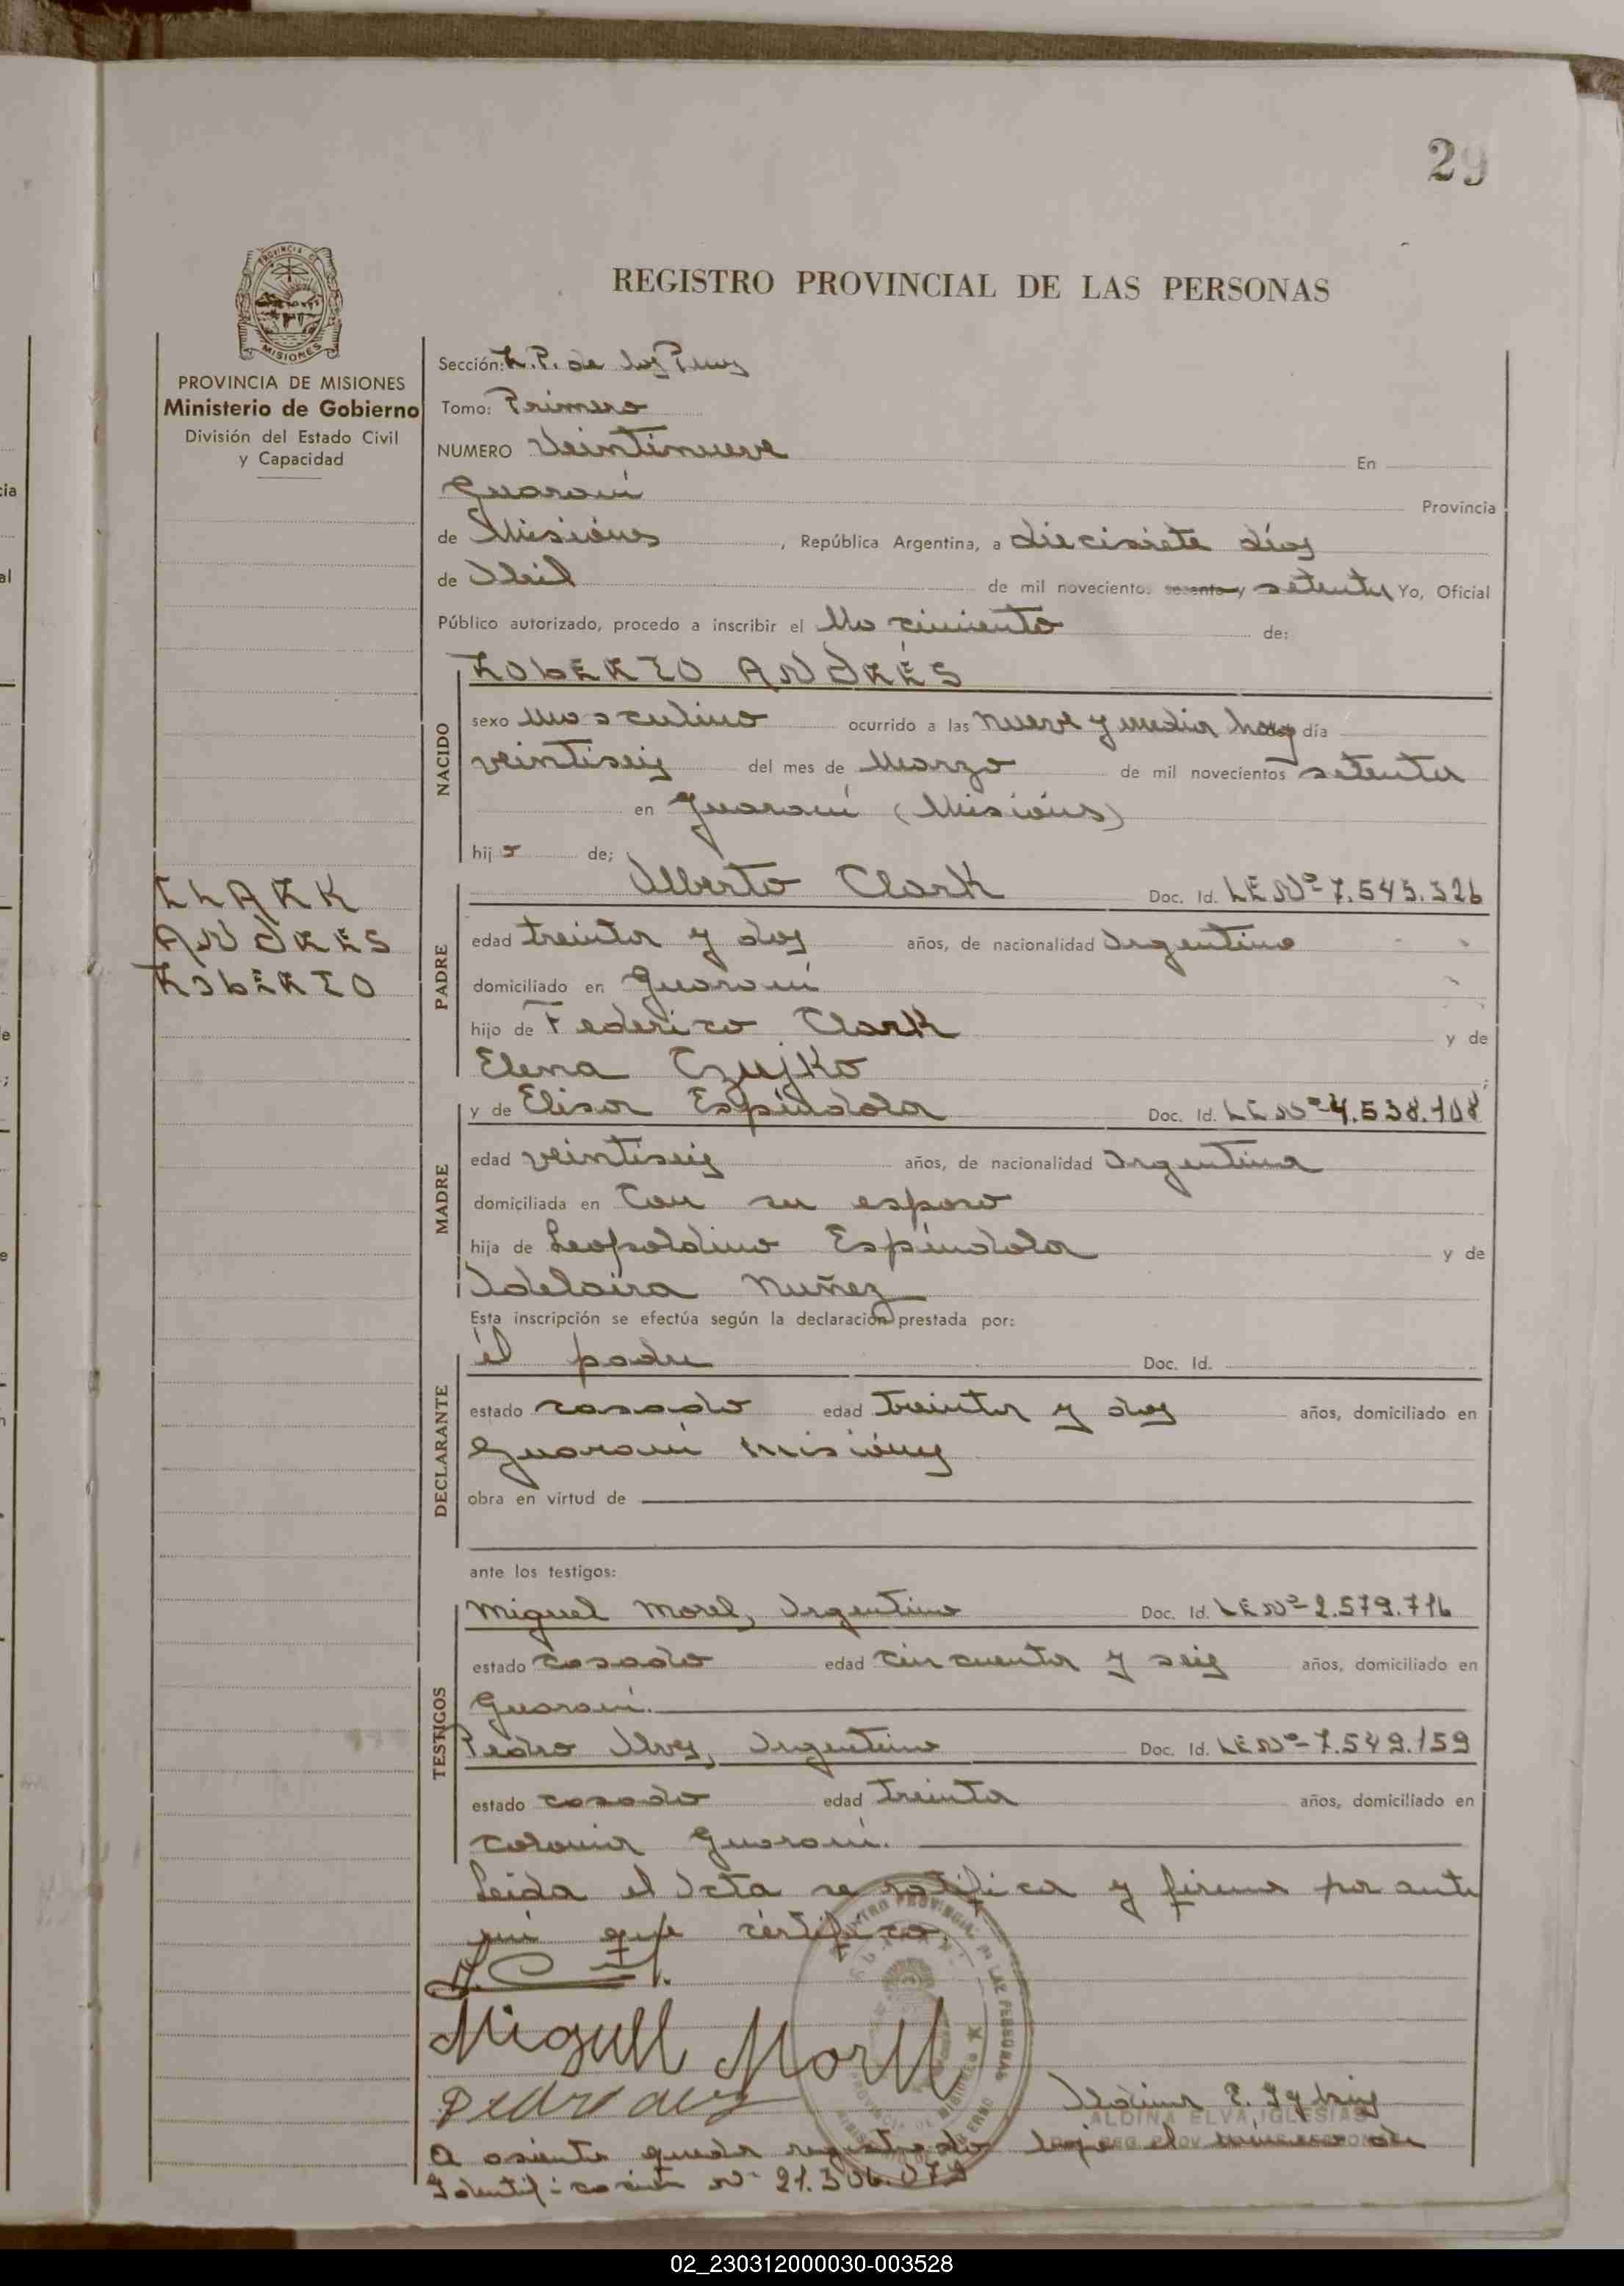 29
REGISTRO PROVINCIAL DE LAS PERSONAS
PROVINCIA DE MISIONES
Ministerio de Gobierno
División del Estado Civil
y Capacidad
Sección: R.P. de las
Tomo: Primero
NUMERO Veintinueve En
Guaraní Provincia
de Misiones, República Argentina, a diecisiete días
de Abril de mil noveciento. sesenta y setenta Yo, Oficial
Público autorizado, procedo a inscribir el Nacimiento de:
ROBERTO ANDRÉS
NACIDO
sexo Masculino ocurrido a las nueve y media horas día
veintiseis del mes de Marzo de mil novecientos setenta
en Guaraní (Misiones)
hijo de;
CLARK
ANDRES
ROBERTO
PADRE
Alberto Clark Doc. Id. LE Nº 7.545.326
edad treinta y dos años, de nacionalidad Argentino
domiciliado en Guaraní
hijo de Federico Clark y de
Elena Czujko ;
MADRE
y de Elisa Espíndola Doc. Id. LE Nº 4.538.108
edad veintiseis años, de nacionalidad Argentina
domiciliada en Con su esposo
hija de Leopoldino Espíndola y de
Adelaira Nuñez
Esta inscripción se efectúa según la declaración prestada por:
DECLARANTE
él padre Doc. Id.
estado casado edad treinta y dos años, domiciliado en
Guaraní Misiones
obra en virtud de
ante los testigos:
TESTIGOS
Miguel Morel, Argentino Doc. Id. LE Nº 2.579.716
estado casado edad cincuenta y seis años, domiciliado en
Guaraní.
Pedro Alves, Argentino Doc. Id. LE Nº 7.549.159
estado casado edad treinta años, domiciliado en
Colonia Guaraní.
Leida el Acta se ratifica y firma por ante
mí que certifico.
Miguel Morel
Aldina E. Iglesias
ALDINA ELVA IGLESIAS
A asiento queda registrado bajo el número de
Identificación Nº 21.306.079
02_230312000030-003528